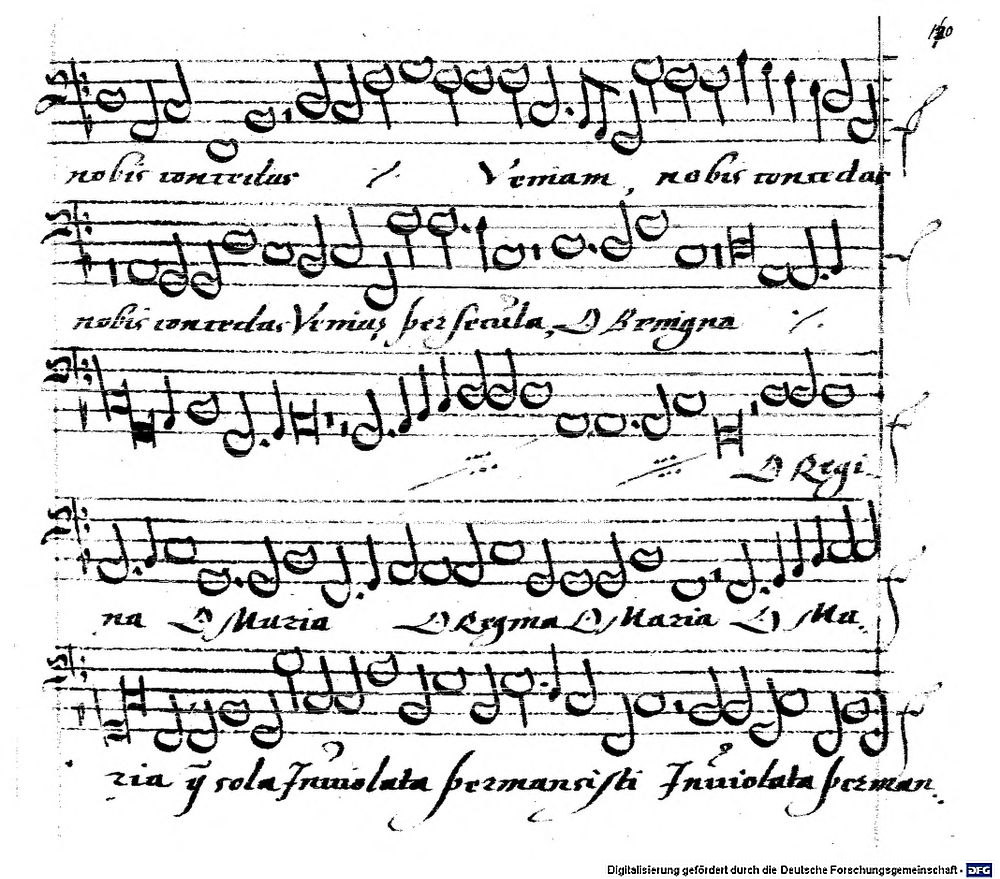 120
nobis concedas ∕. Veniam, nobis concedas
nobis concedas Venius per secula, O Benigna ∕.
O Regi-
na O Maria O Regina O Maria O Ma.
ria q̃ sola Inuiolata permansisti Inuiolata perman.
Digitalisierung gefördert durch die Deutsche Forschungsgemeinschaft - DFG